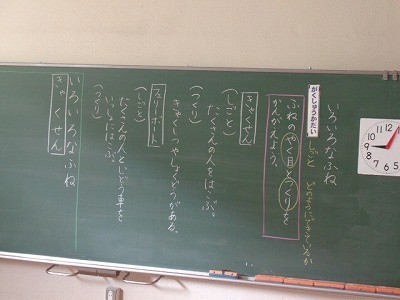 いろいろなふね
しごと どのようにできているか
がくしゅうかだい
ふねのやく目とつくりを
かんがえよう。
きゃくせん
(しごと)
たくさんの人をはこぶ。
(つくり)
きゃくしつやしょくどうがある。
フェリーボート
(しごと)
たくさんの人とじどう車を
いっしょにはこぶ。
(つくり)
いろいろなふね
きゃくせん